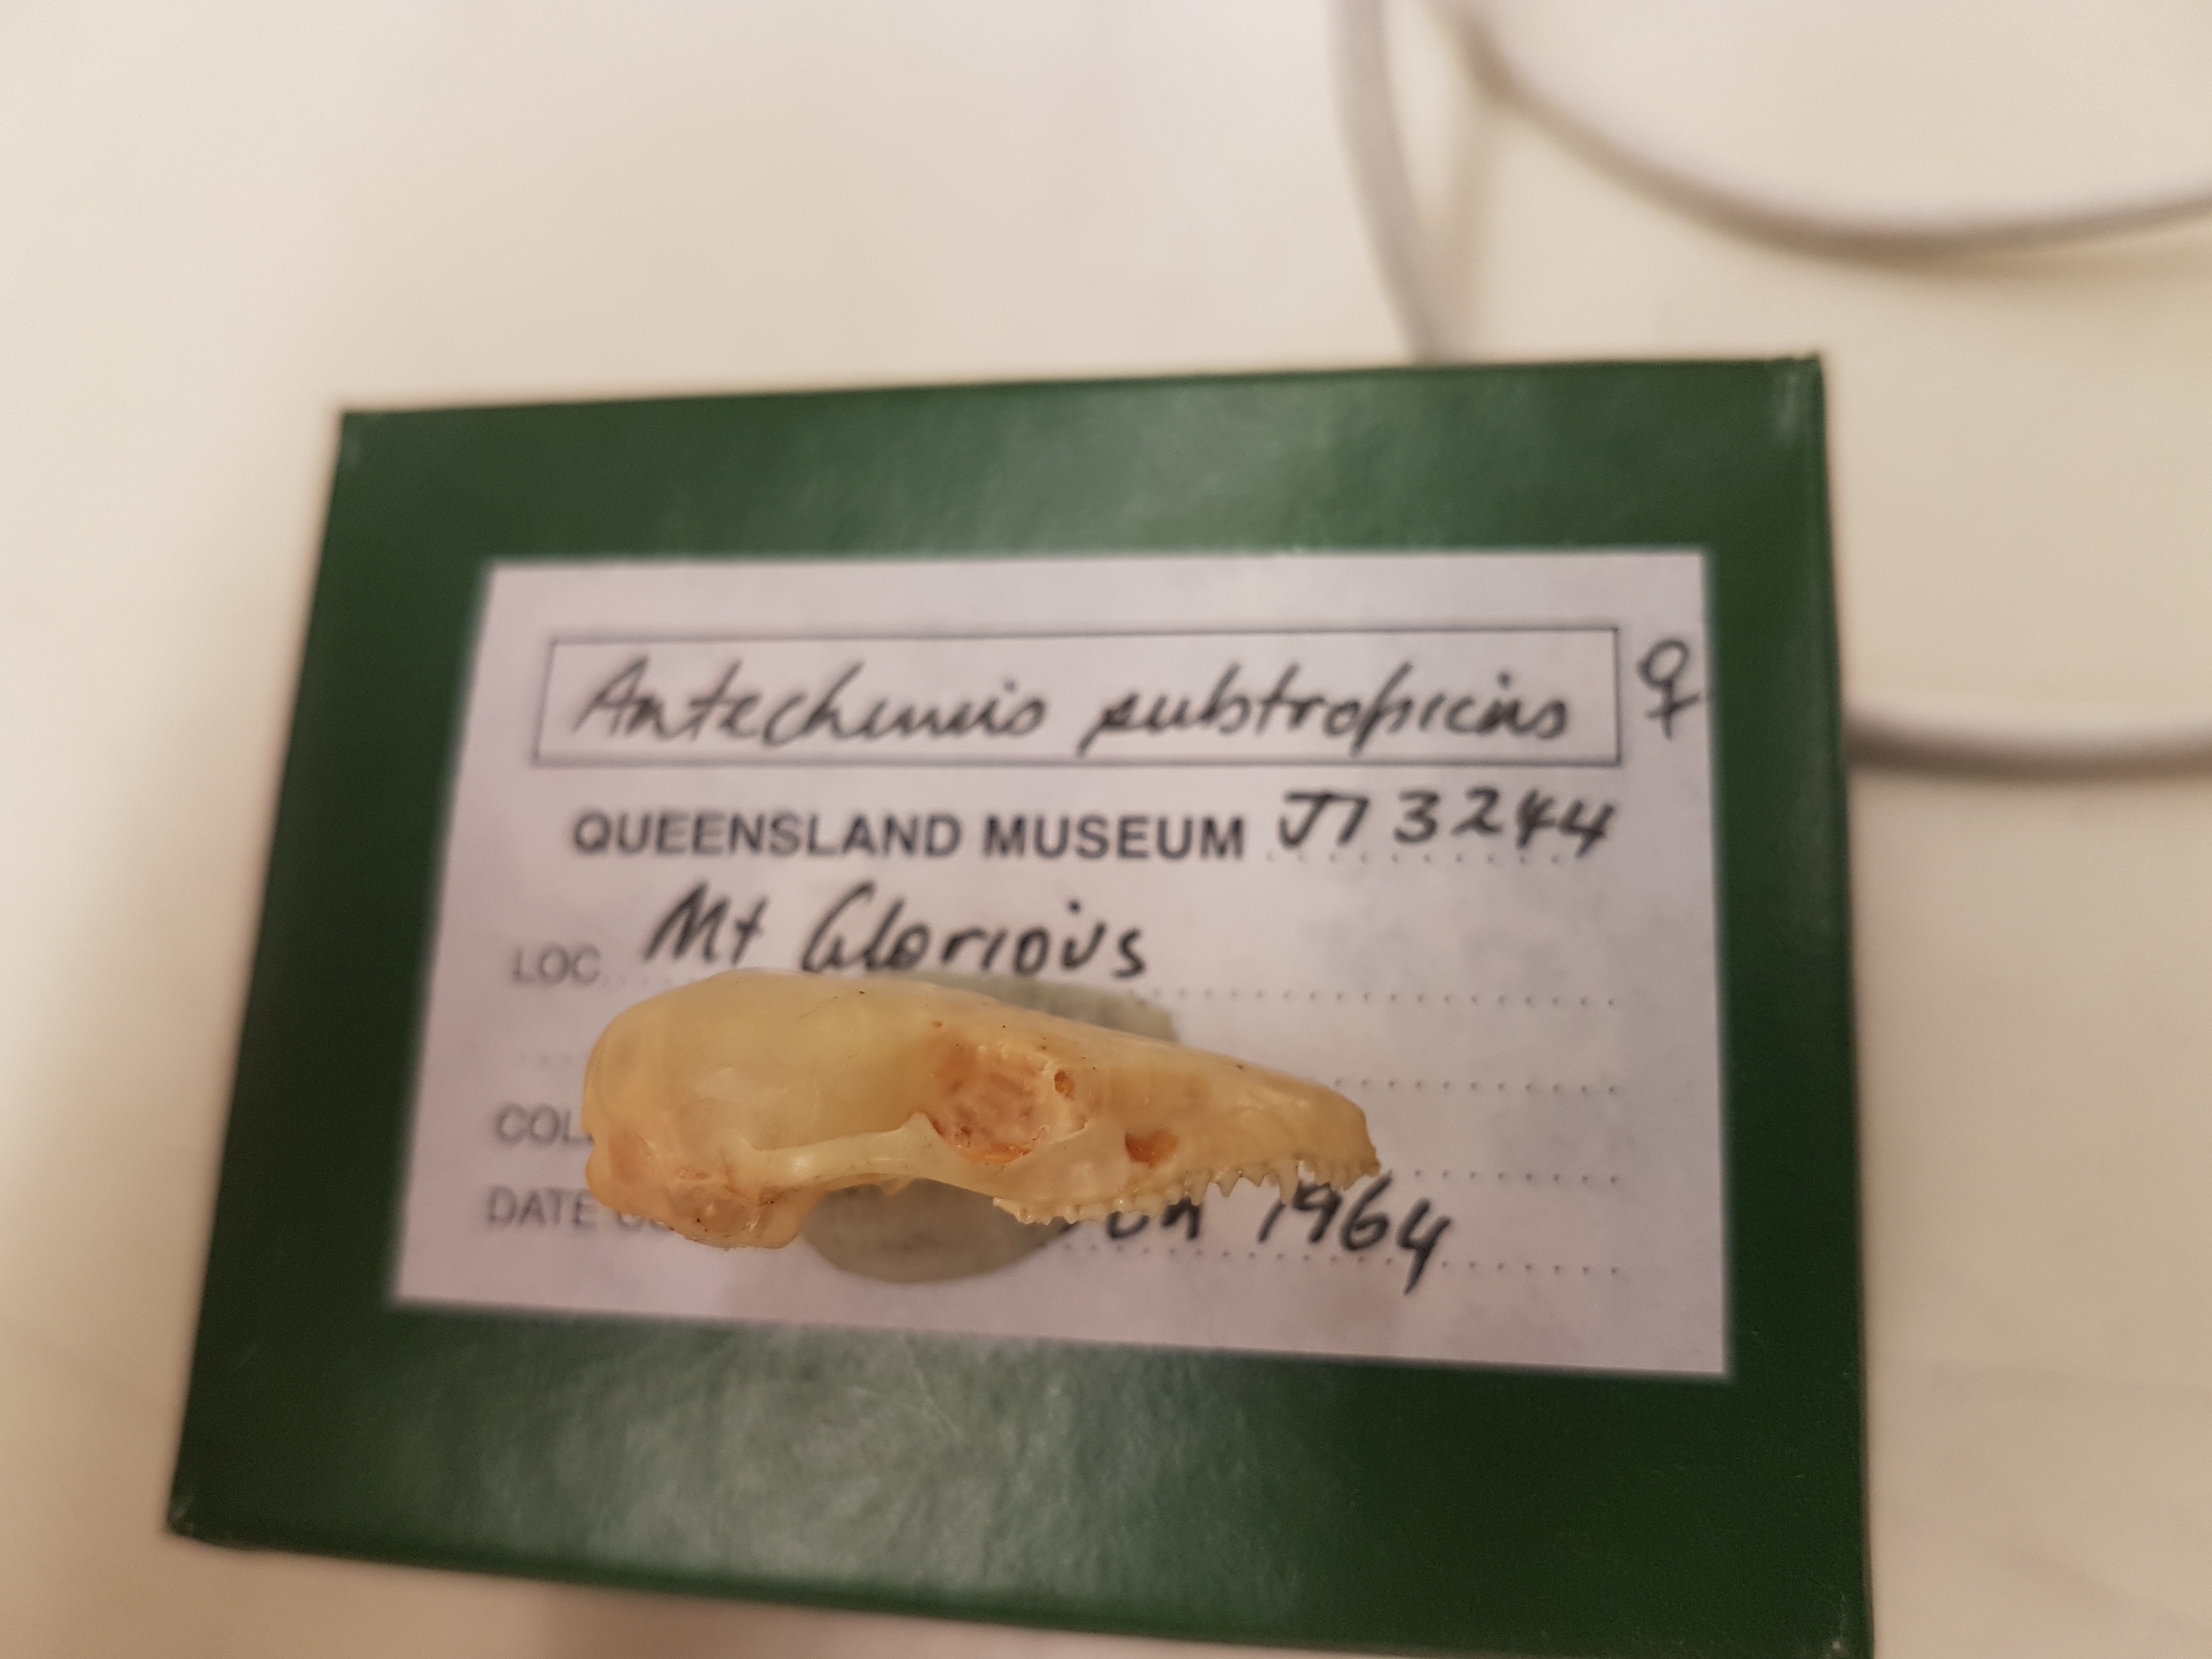 Antechinus subtropicus ♀
QUEENSLAND MUSEUM J13244
LOC. Mt Glorious
COL
DATE 1964